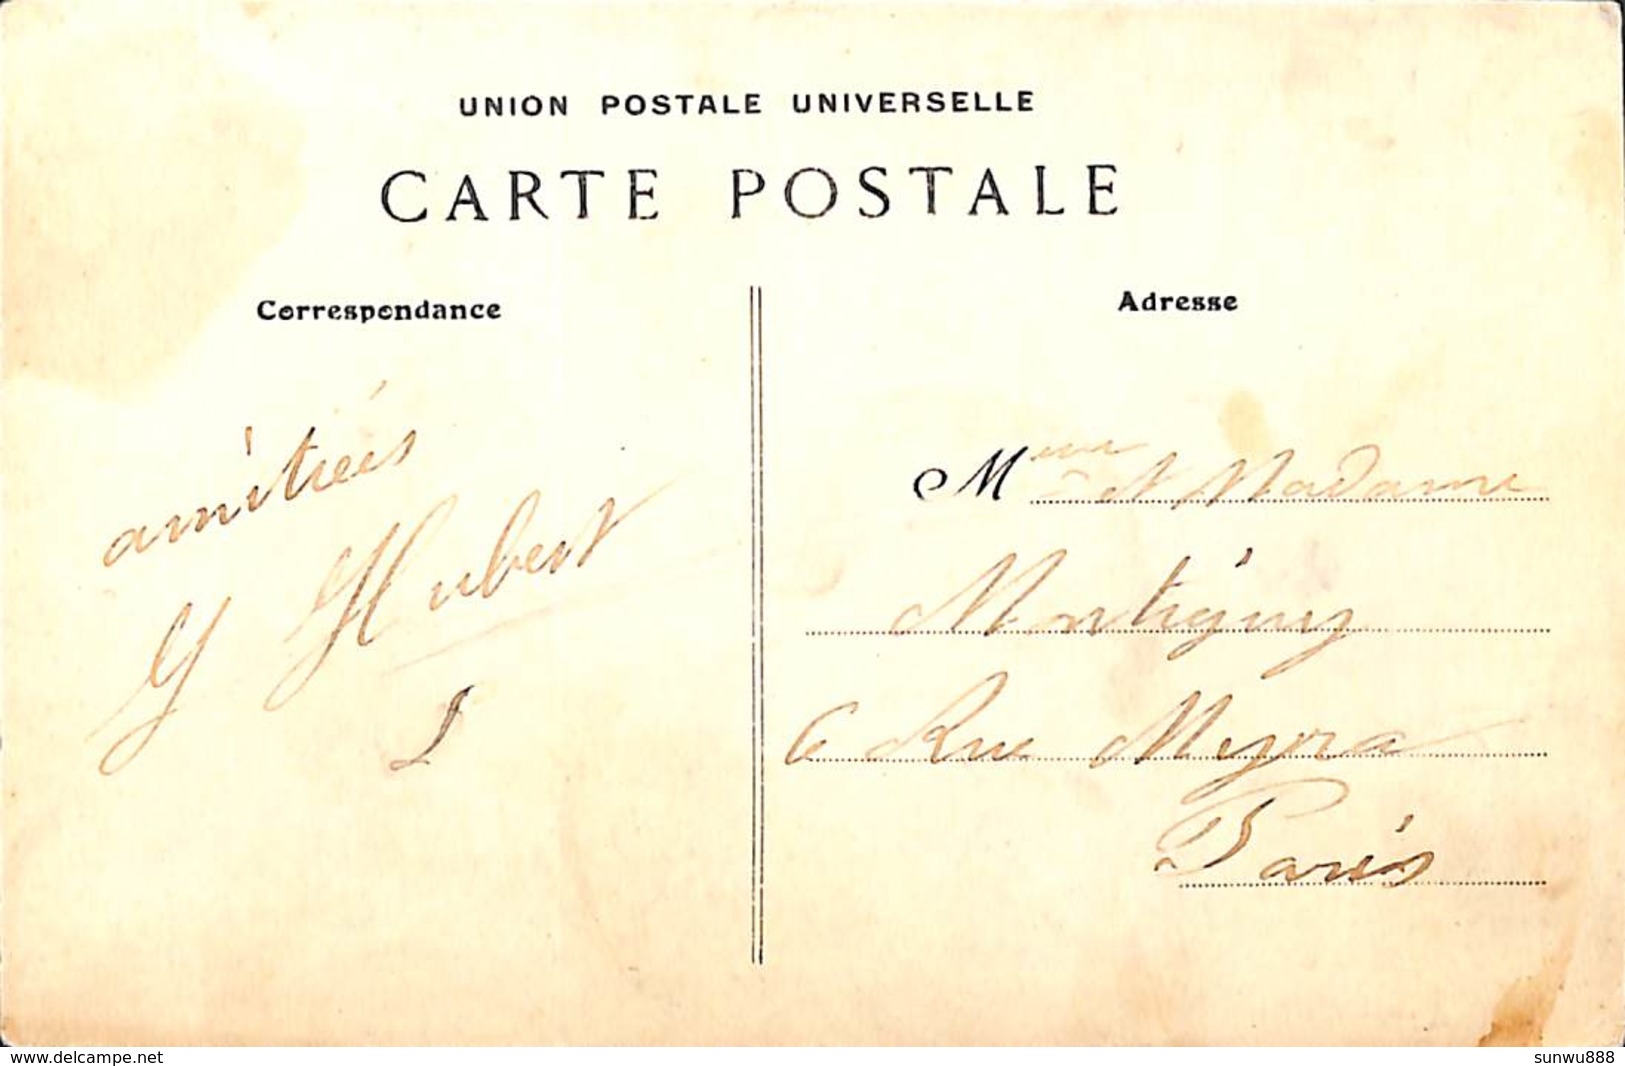 UNION POSTALE UNIVERSELLE
CARTE POSTALE
Correspondance
amitiés
G Hubert
Adresse
M et Madame
Montigny
6 Rue Meyra
Paris
www.delcampe.net
sunwu888